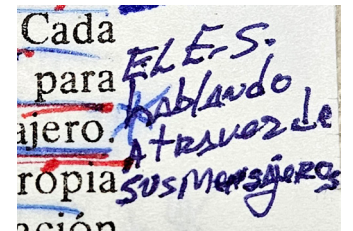 Cada
para
ajero.
ropia
ación
E.L E.S.
hablando
atravez de
sus Mensajeros